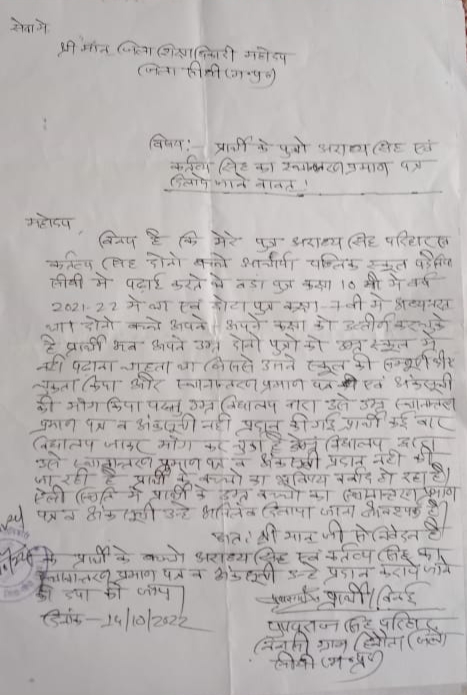 सेवा मे,
श्री मान जिला शिक्षा अधिकारी महोदय
जिला सीधी (म०प्र०)
विषय:- प्रार्थी के पुत्रो अराध्य सिंह एवं
कर्तव्य सिंह का स्थानान्तरण प्रमाण पत्र
दिलाये जाने बावत।
महोदय,
विनय है कि मेरे पुत्र अराध्य सिंह परिहार एवं
कर्तव्य सिंह दोनो बच्चे पब्लिक स्कूल
सीधी में पढ़ाई करते थे बडा पुत्र कक्षा 10 वी में वर्ष
2021-22 मे था एवं छोटा पुत्र कक्षा में अध्ययनरत
था। दोनो बच्चे अपने अपने कक्षा को उत्तीर्ण कर चुके
है प्रार्थी अब अपने उक्त दोनो पुत्रो को उक्त स्कूल मे
नही पढाना चाहता था जिससे उसने स्कूल की सम्पूर्ण फीस
चुकता किया और स्थानान्तरण प्रमाण पत्र एवं अंकसूची
की माँग किया परन्तु उक्त विद्यालय द्वारा उसे उक्त स्थानान्तरण
प्रमाण पत्र व अंकसूची नही प्रदान की गई प्रार्थी कई बार
विद्यालय जाकर माँग कर चुका है उक्त विद्यालय द्वारा
उसे स्थानान्तरण प्रमाण पत्र व अंकसूची प्रदान नही की
जा रही है प्रार्थी के बच्चो का भविष्य बर्बाद हो रहा है।
ऐसी स्थिति मे प्रार्थी के उक्त बच्चो का स्थानान्तरण प्रमाण
पत्र व अंकसूची उन्हे दिलाया जाना आवश्यक है
अतः श्री मान जी से निवेदन है
कि प्रार्थी के बच्चे अराध्य सिंह एवं कर्तव्य सिंह का
स्थानान्तरण प्रमाण पत्र व अंकसूची उन्हे प्रदान कराये जाने
की दया की जाय।
प्रार्थी/विनई
दिनांक - 14/10/2022
सिंह परिहार
ग्राम (जिला
सीधी (म०प्र०)